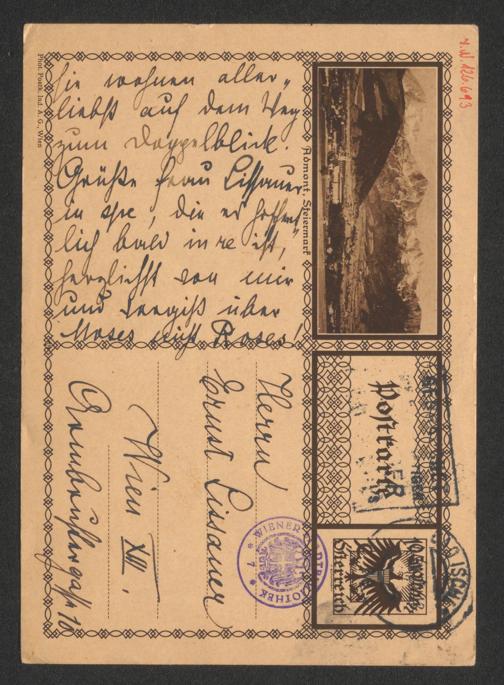 Sie wohnen aller-
liebst auf dem Weg
zum Doppelblick.
Grüße Frau Lissauer
in spe, die es hoffent-
lich bald in re ist,
herzlichst von mir
und vergiß über
Moses nicht Roses!
Phot. Postk. Ind. A. G., Wien
Admont, Steiermark
I.N. 126.693
Postkarte
10 Groschen
Österreich
ISCHL
WIENER STADTBIBLIOTHEK
* 7 *
Herrn
Ernst Lissauer
Wien XIII.